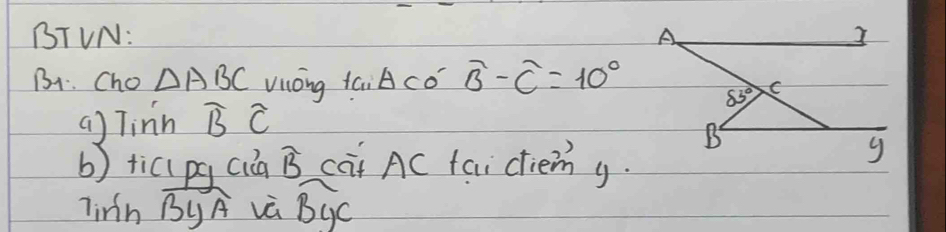 BTVN:
B1: Cho ΔABC vuông tại A có B̂ - Ĉ = 10°
a) Tính B̂ Ĉ
b) tia pg của B̂ cắt AC tại điểm y.
Tính ByA và ByC
A
C
83°
B
y